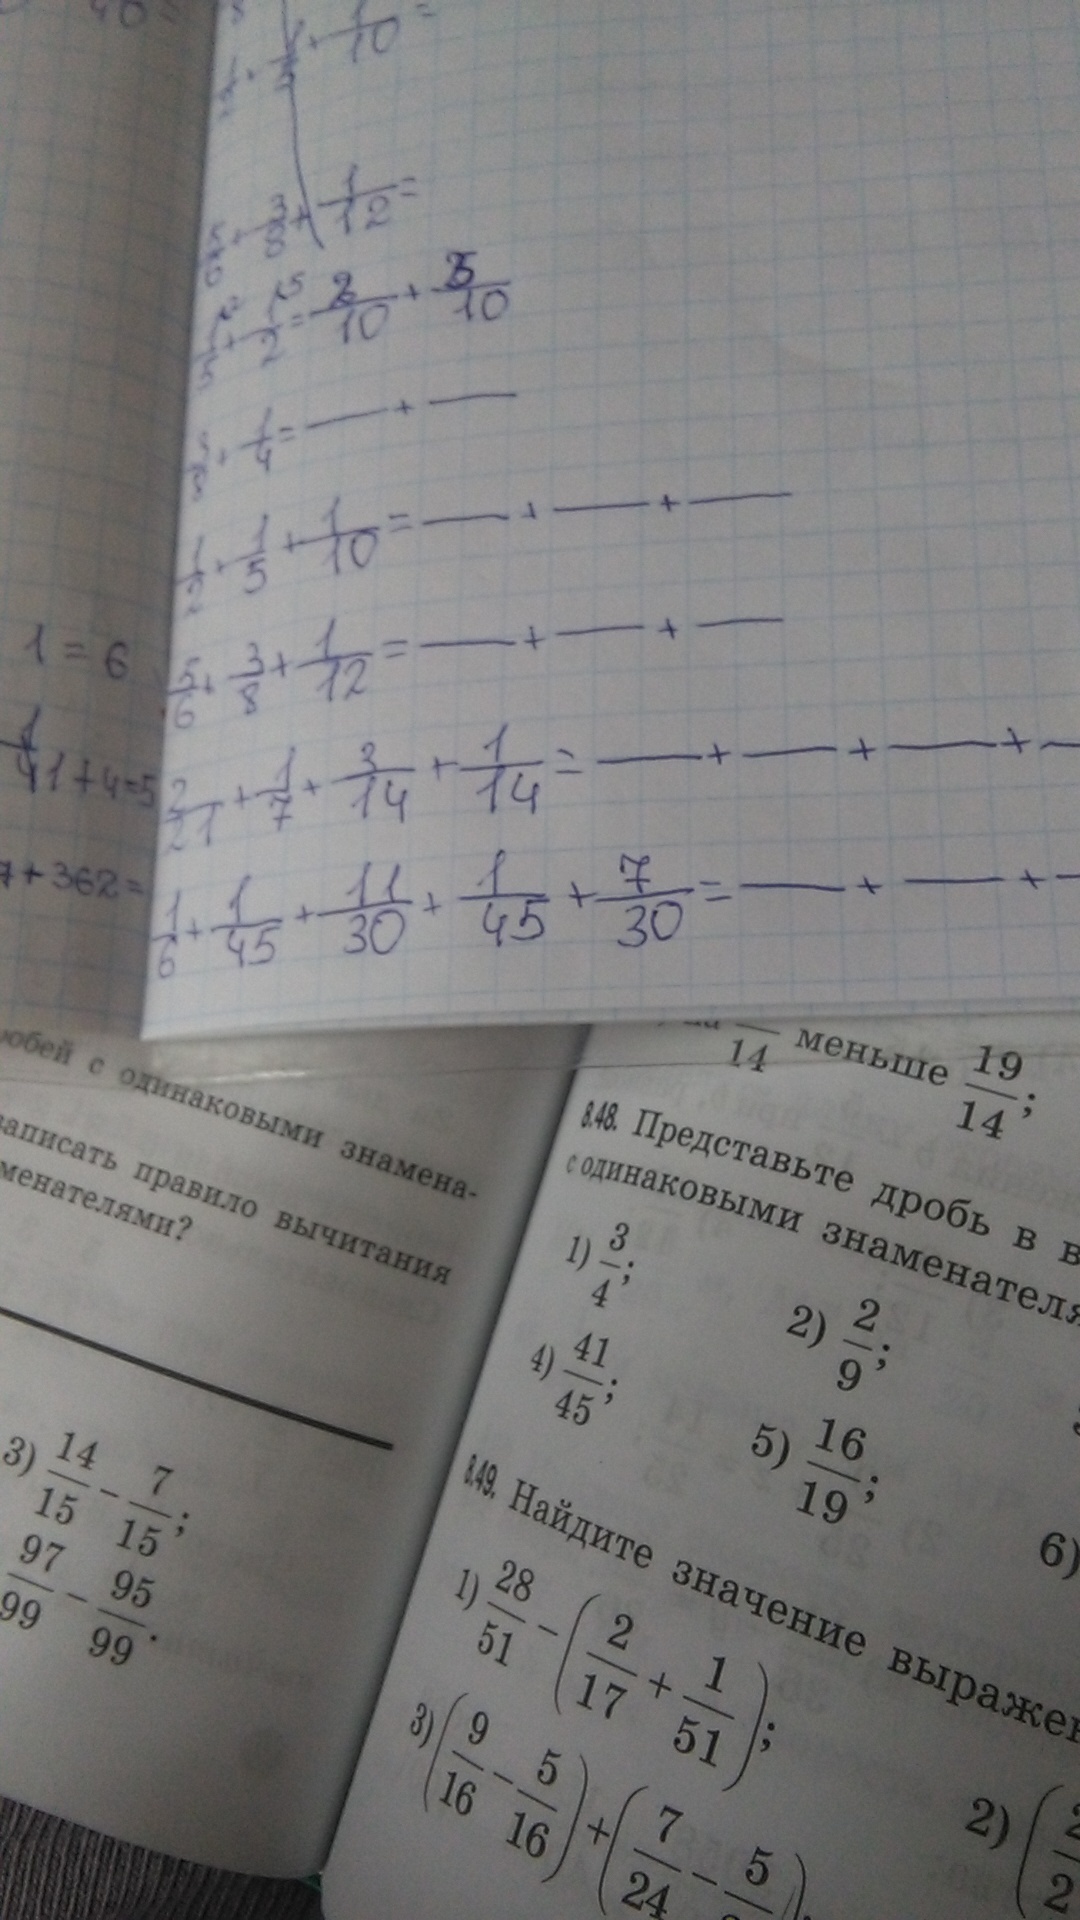 1/2 + 1/5 + 1/10 =
5/6 + 3/8 + 1/12 =
1/5 + 1/2 = 2/10 + 5/10
+ 1/4 = — + —
1/2 + 1/5 + 1/10 = — + — + —
5/6 + 3/8 + 1/12 = — + — + —
2/21 + 1/7 + 3/14 + 1/14 = — + — + — + —
1/6 + 1/45 + 11/30 + 1/45 + 7/30 = — + — + —
1 = 6
1+4=5
7+362=
с одинаковыми знамена-
записать правило вычитания
менателями?
3) 14/15 − 7/15;
97/99 − 95/99.
14 меньше 19/14;
8.48. Представьте дробь в
с одинаковыми
1) 3/4;
2) 2/9;
4) 41/45;
5) 16/19;
6)
8.49. Найдите значение
1) 28/51 − (2/17 + 1/51);
2) (
3) (9/16 − 5/16) + (7/24 − 5